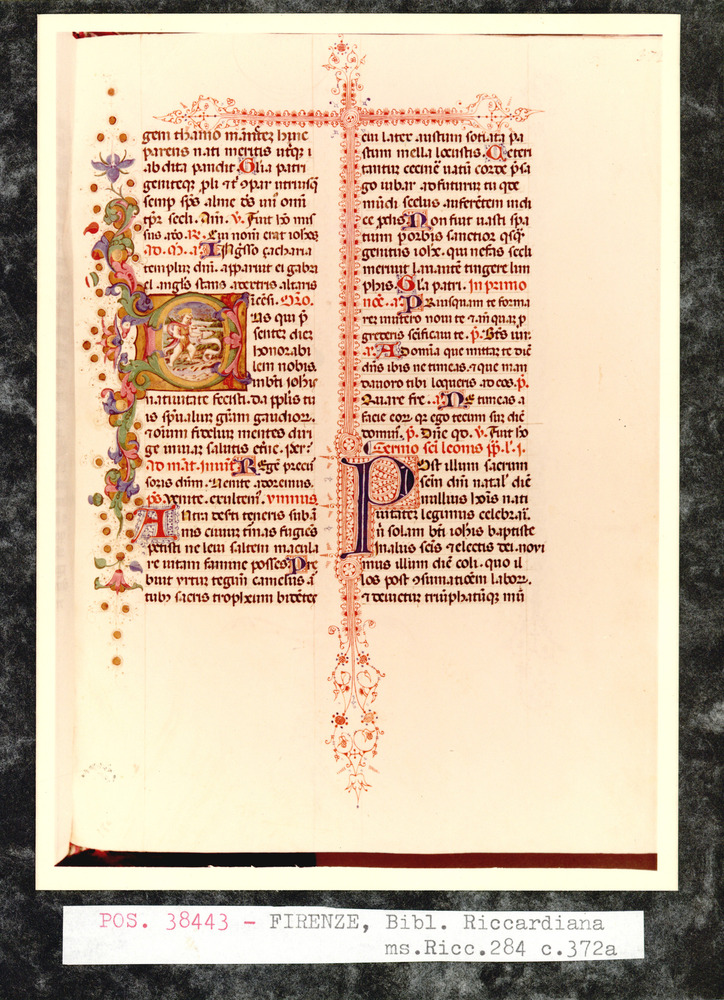 gem thamo manētez huic
parens nati meritis utq̄z i
abdita pandit Gl̄ia patri
genitoqz pli ⁊ ꝯpar utriusqz
semp sp̄s alme d̄s un' omī
tp̄r secli. Am̄. v̄. Fuit hō mis
sus a dō. R. Cui nom̄ erat ioh̄es
ad. M. a. Ingr̄sso çacharia
templuz dn̄i. apparuit ei gabri
el angl̄s stans adextris altaris
icēsi. Oro.
Deus qui p̄
sentez diez
honorabi
lem nobis.
inbt̄i ioh̄is
natiuitate fecisti. da pplis tu
is sp̄ualiuz grām gaudior.
⁊ oiūm fideliuz mentes diri
ge inuiaz salutis et'ne. per.
ad mat. inuit. Regē precu
soris dn̄m. Venite adoremus.
p̄s. Venite. exultem̄. ymnus
Antra desti teneris sub a
nis ciuiuz t'mas fugiēs
petisti ne leui saltem macula
re uitam famine posses Pre
buit yrtuz teguȳ camelus a
tubꝫ sacris trophium bidētes
cui latex austum sotiata pa
stum mella locustis. Ceteri
tantuz cecinē uatū corde p̄sa
go iubar adfuturuz tu qdē
mūdi scelus auferētem indi
ce pdis Non fuit uasti spa
tium p orbis sanctior qsq̄
genitus ioh̄e. qui nefas secli
meruit lauantē tingere lim
phis. Gl̄a patri. In primo
noc̄. a. Priusquam te forma
rez inutero noui te ⁊ añ quaz p
gredereris sc̄ificaui te. p̄. Bt̄s uir.
a. Ad omīa que mittaz te dic̄
dn̄s ibis ne timeas. ⁊ que man
dauero tibi loqueris ad eos. p̄.
Quare fre. a. Ne timeas a
facie eoꝝ qz ego tecum suz dic̄
dominꝰ. p̄. Dn̄e qd. v̄. Fuit hō
Sermo sc̄i leonis pp̄. l. j.
Post illum sacrum
sc̄im dn̄i natal' diē
nullius hōis nati
uitatez legimus celebrari.
Nͥ solam bt̄i ioh̄is baptiste
Inalus sc̄is ⁊ electis dei. noui
mus illum diē coli. quo il
los post ꝯsumatiōem laboꝝ.
⁊ deuictuz triūphatūqz mū
POS. 38443 - FIRENZE, Bibl. Riccardiana
ms.Ricc.284 c.372a